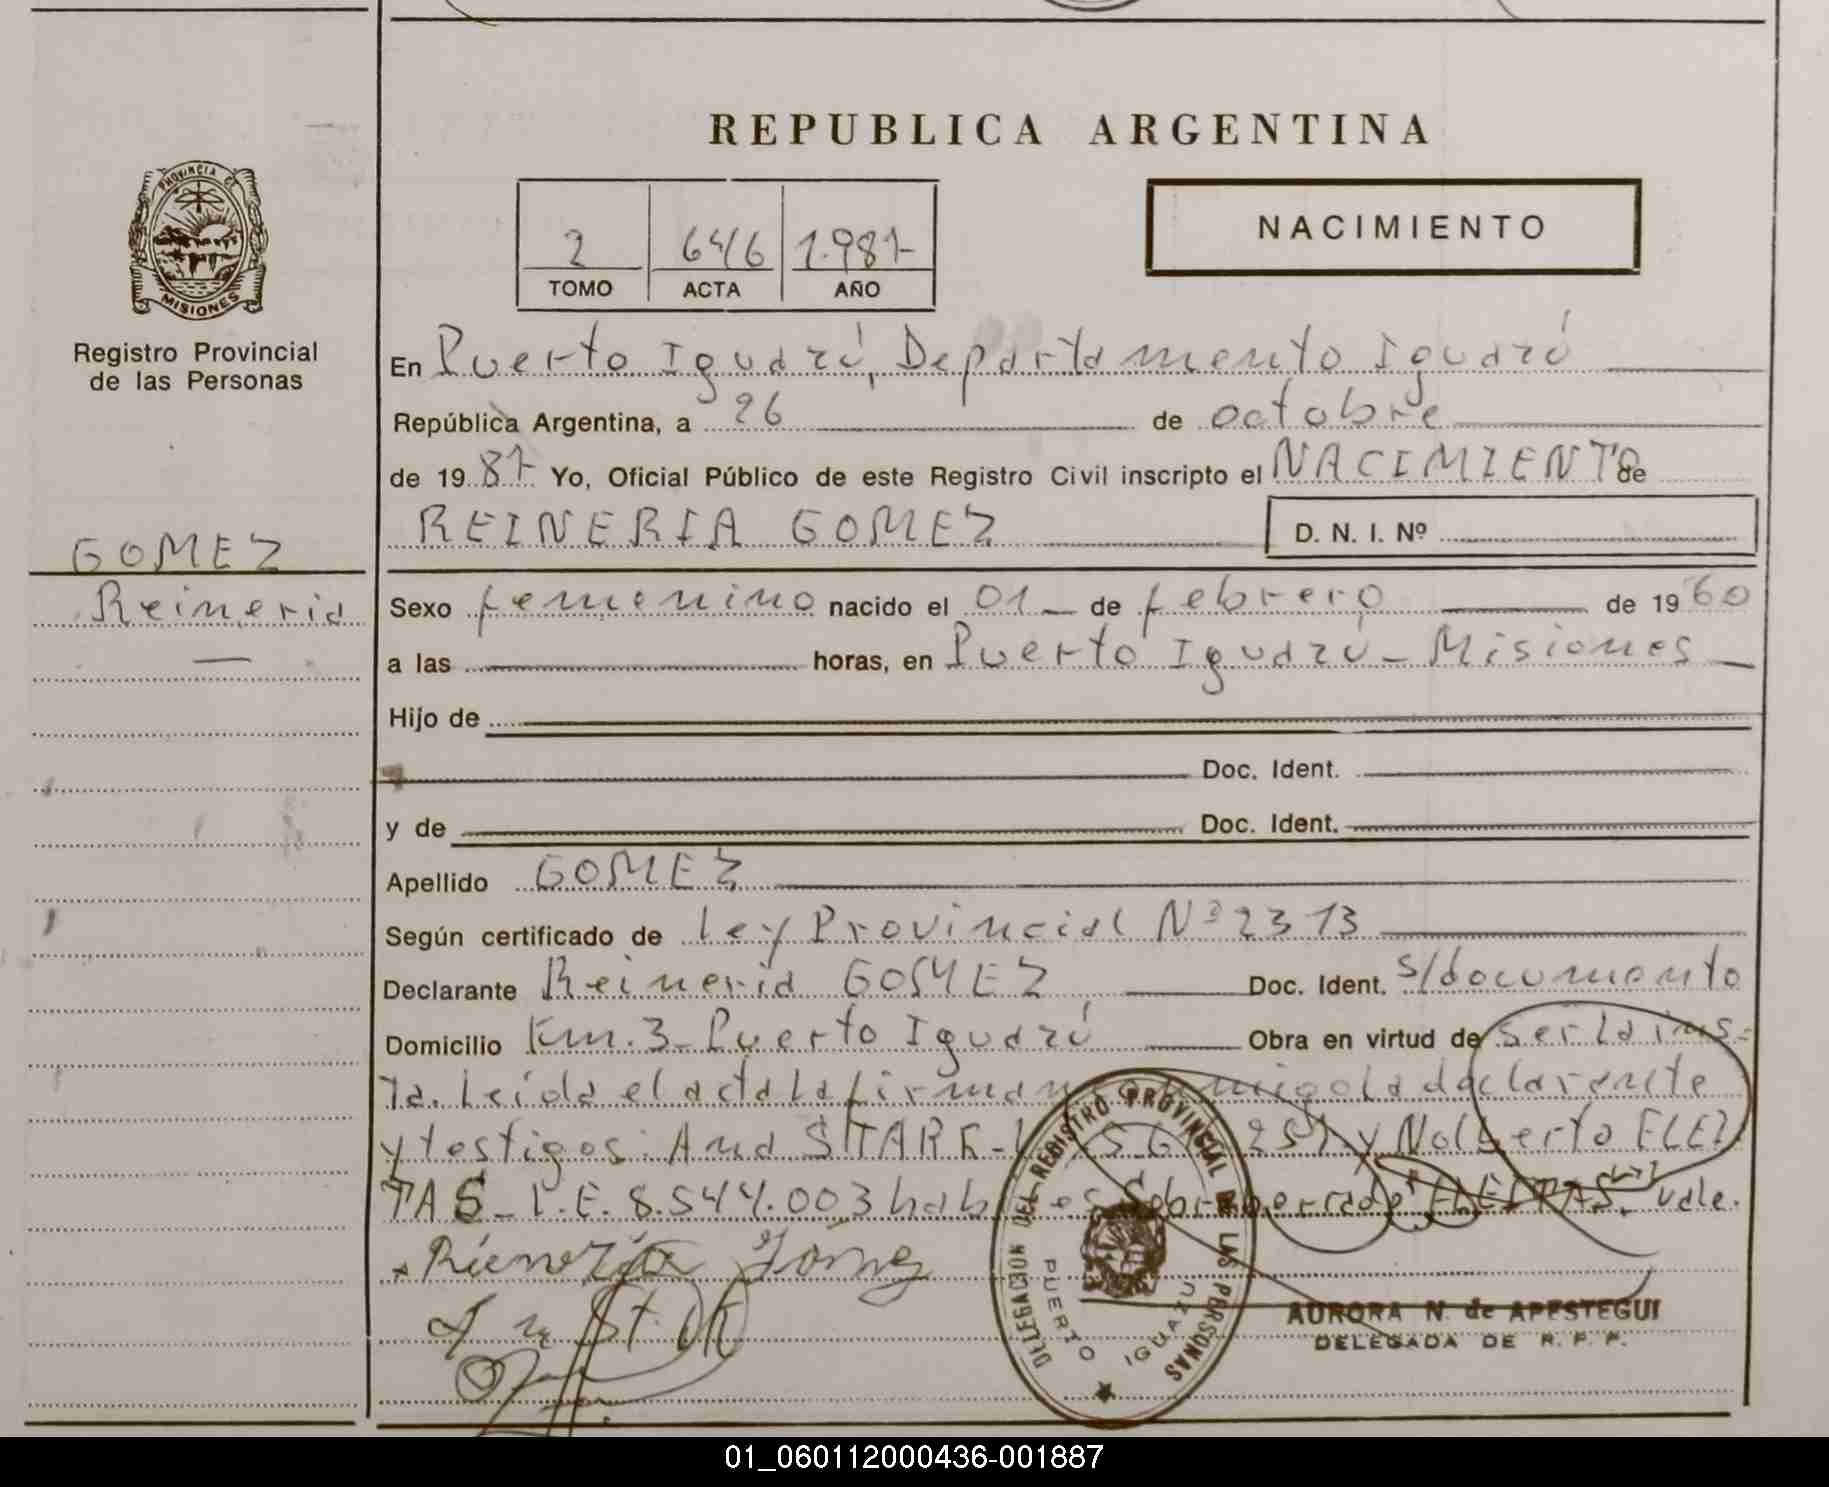 REPUBLICA ARGENTINA
PROVINCIA DE
MISIONES
Registro Provincial
de las Personas
2 646 1.987
TOMO ACTA AÑO
NACIMIENTO
En Puerto Iguazú, Departamento Iguazú
República Argentina, a 26 de octubre
de 19 87 Yo, Oficial Público de este Registro Civil inscripto el NACIMIENTO de
REINERIA GOMEZ D. N. I. Nº
GOMEZ
Reineria
Sexo femenino nacido el 01 de febrero de 19 60
a las horas, en Puerto Iguazú - Misiones
Hijo de
Doc. Ident.
y de Doc. Ident.
Apellido GOMEZ
Según certificado de Ley Provincial Nº 2313
Declarante Reineria GOMEZ Doc. Ident. s/documento
Domicilio Km. 3 - Puerto Iguazú Obra en virtud de ser la ins-
ta. Leída el acta la firman conmigo la declarante
y testigos: Ana STARK - y Nolberto ELEI
TAS - L.E. 8.544.003 Sobre borrado "ELEITAS" vale.
Rienería Gómez
DELEGACION DEL REGISTRO PROVINCIAL DE LAS PERSONAS
PUERTO IGUAZU
AURORA N. de APESTEGUI
DELEGADA DE R. P. P.
01_060112000436-001887